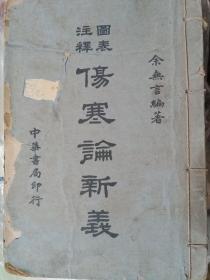 余無言編著
圖表
註釋
傷寒論新義
中華書局印行